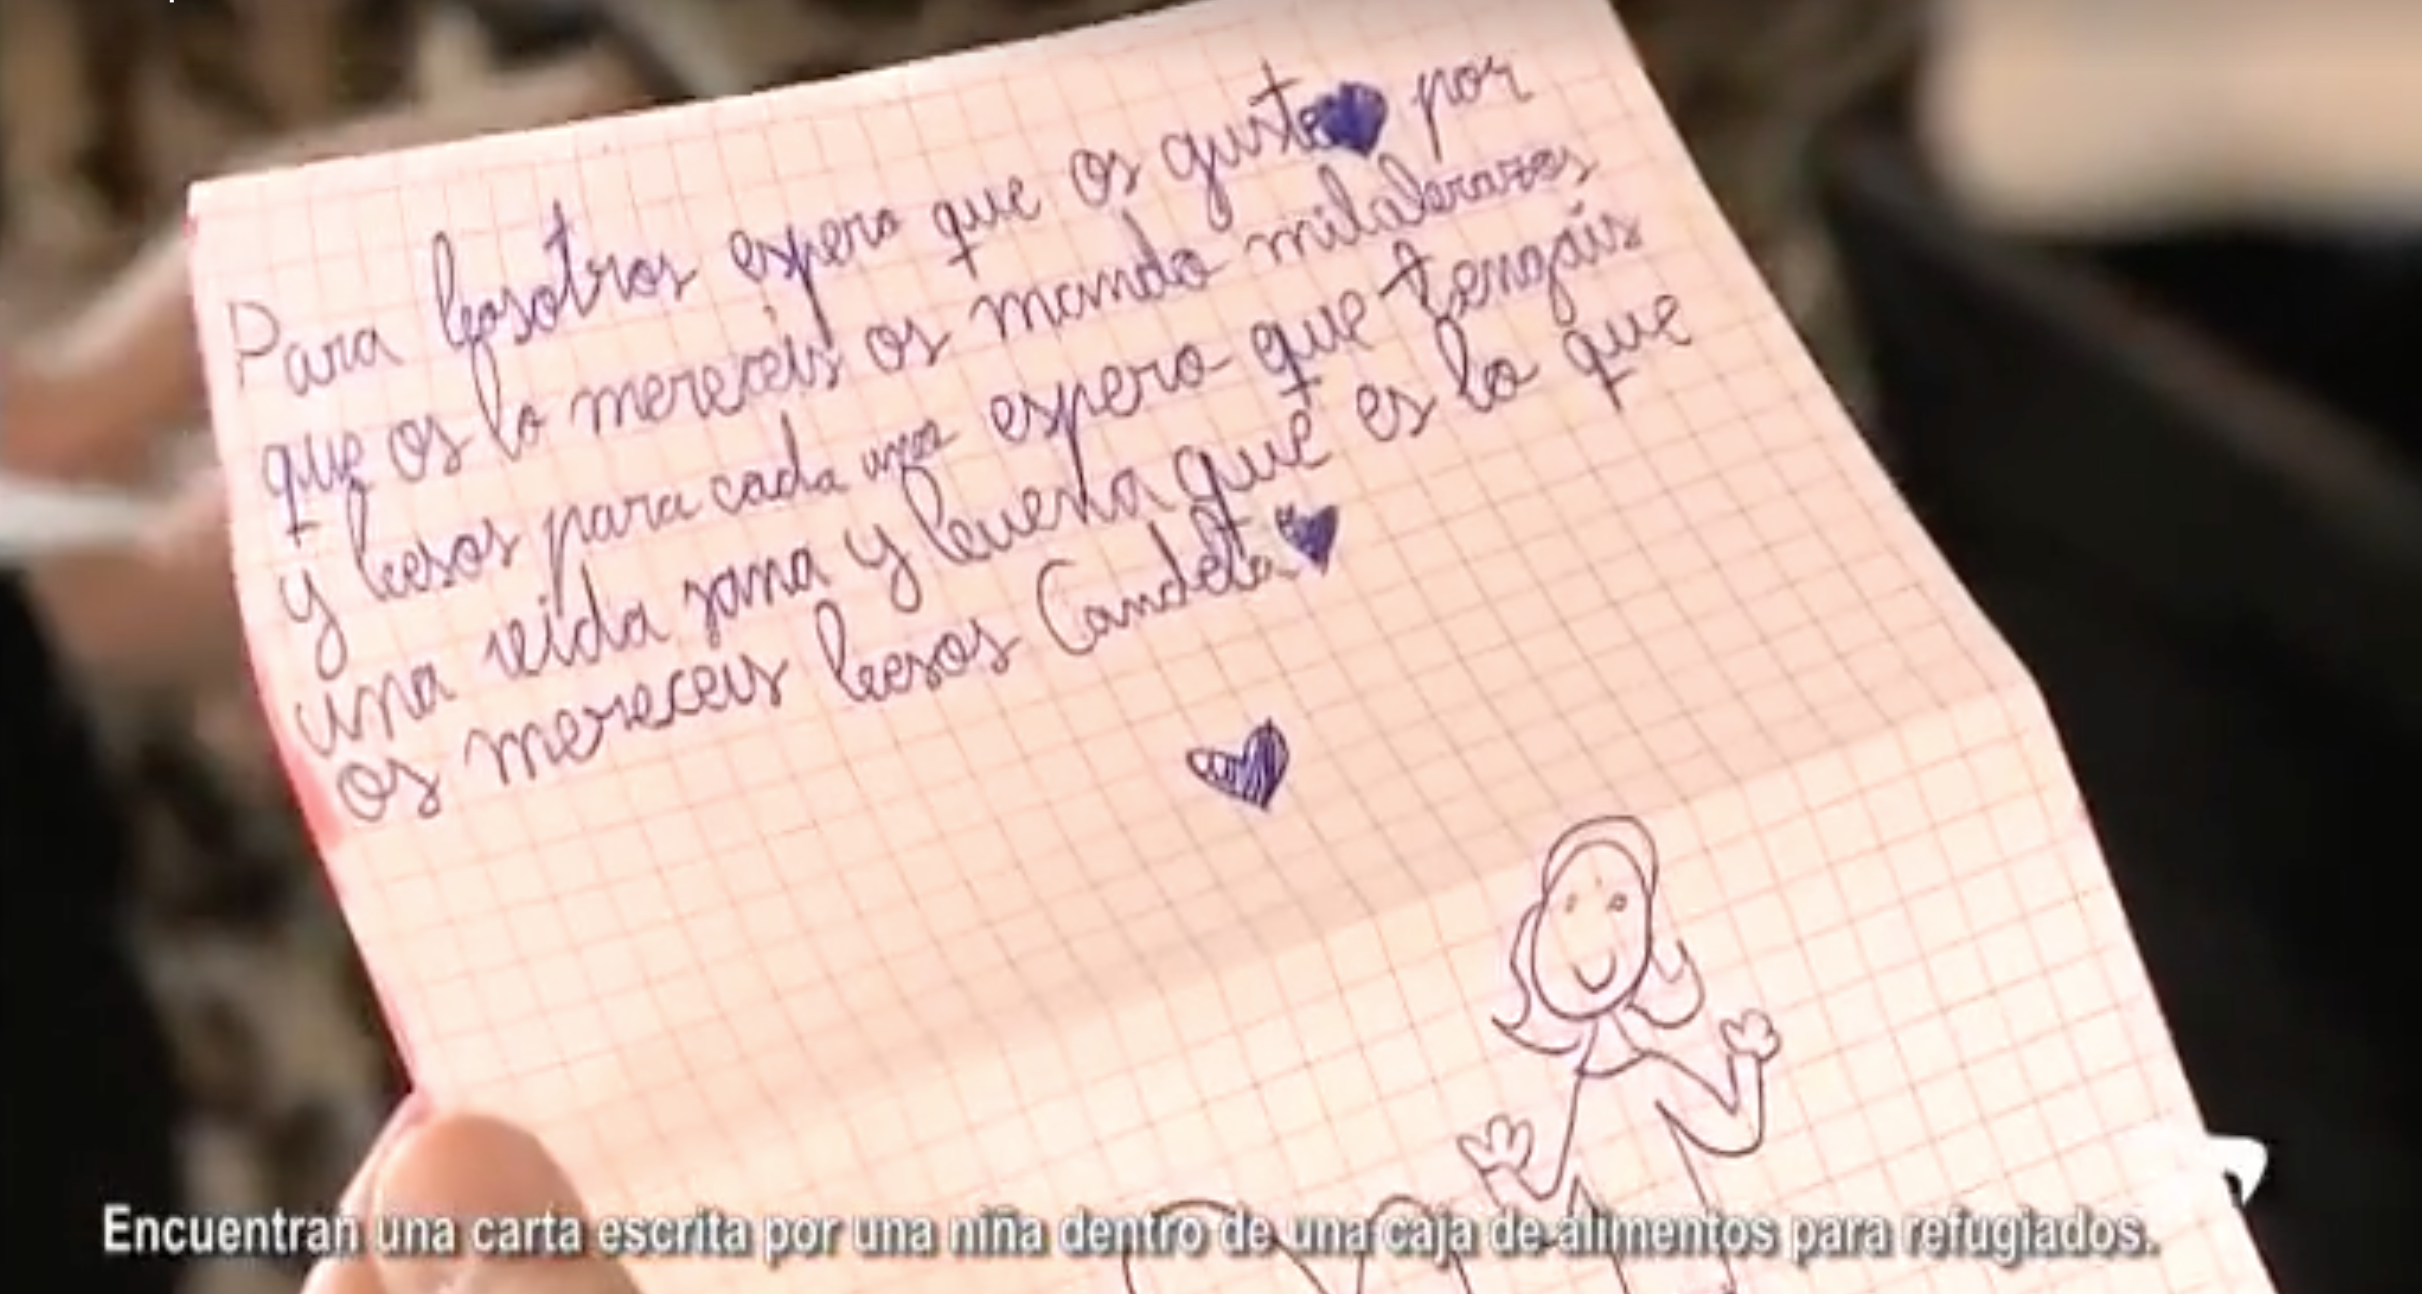 Para bosotros espero que os guste por
que os lo mereceis os mando milabrazos
y besos para cada uno espero que tengais
una vida sana y buena que es lo que
os mereceis besos Candela
Encuentran una carta escrita por una niña dentro de una caja de alimentos para refugiados.